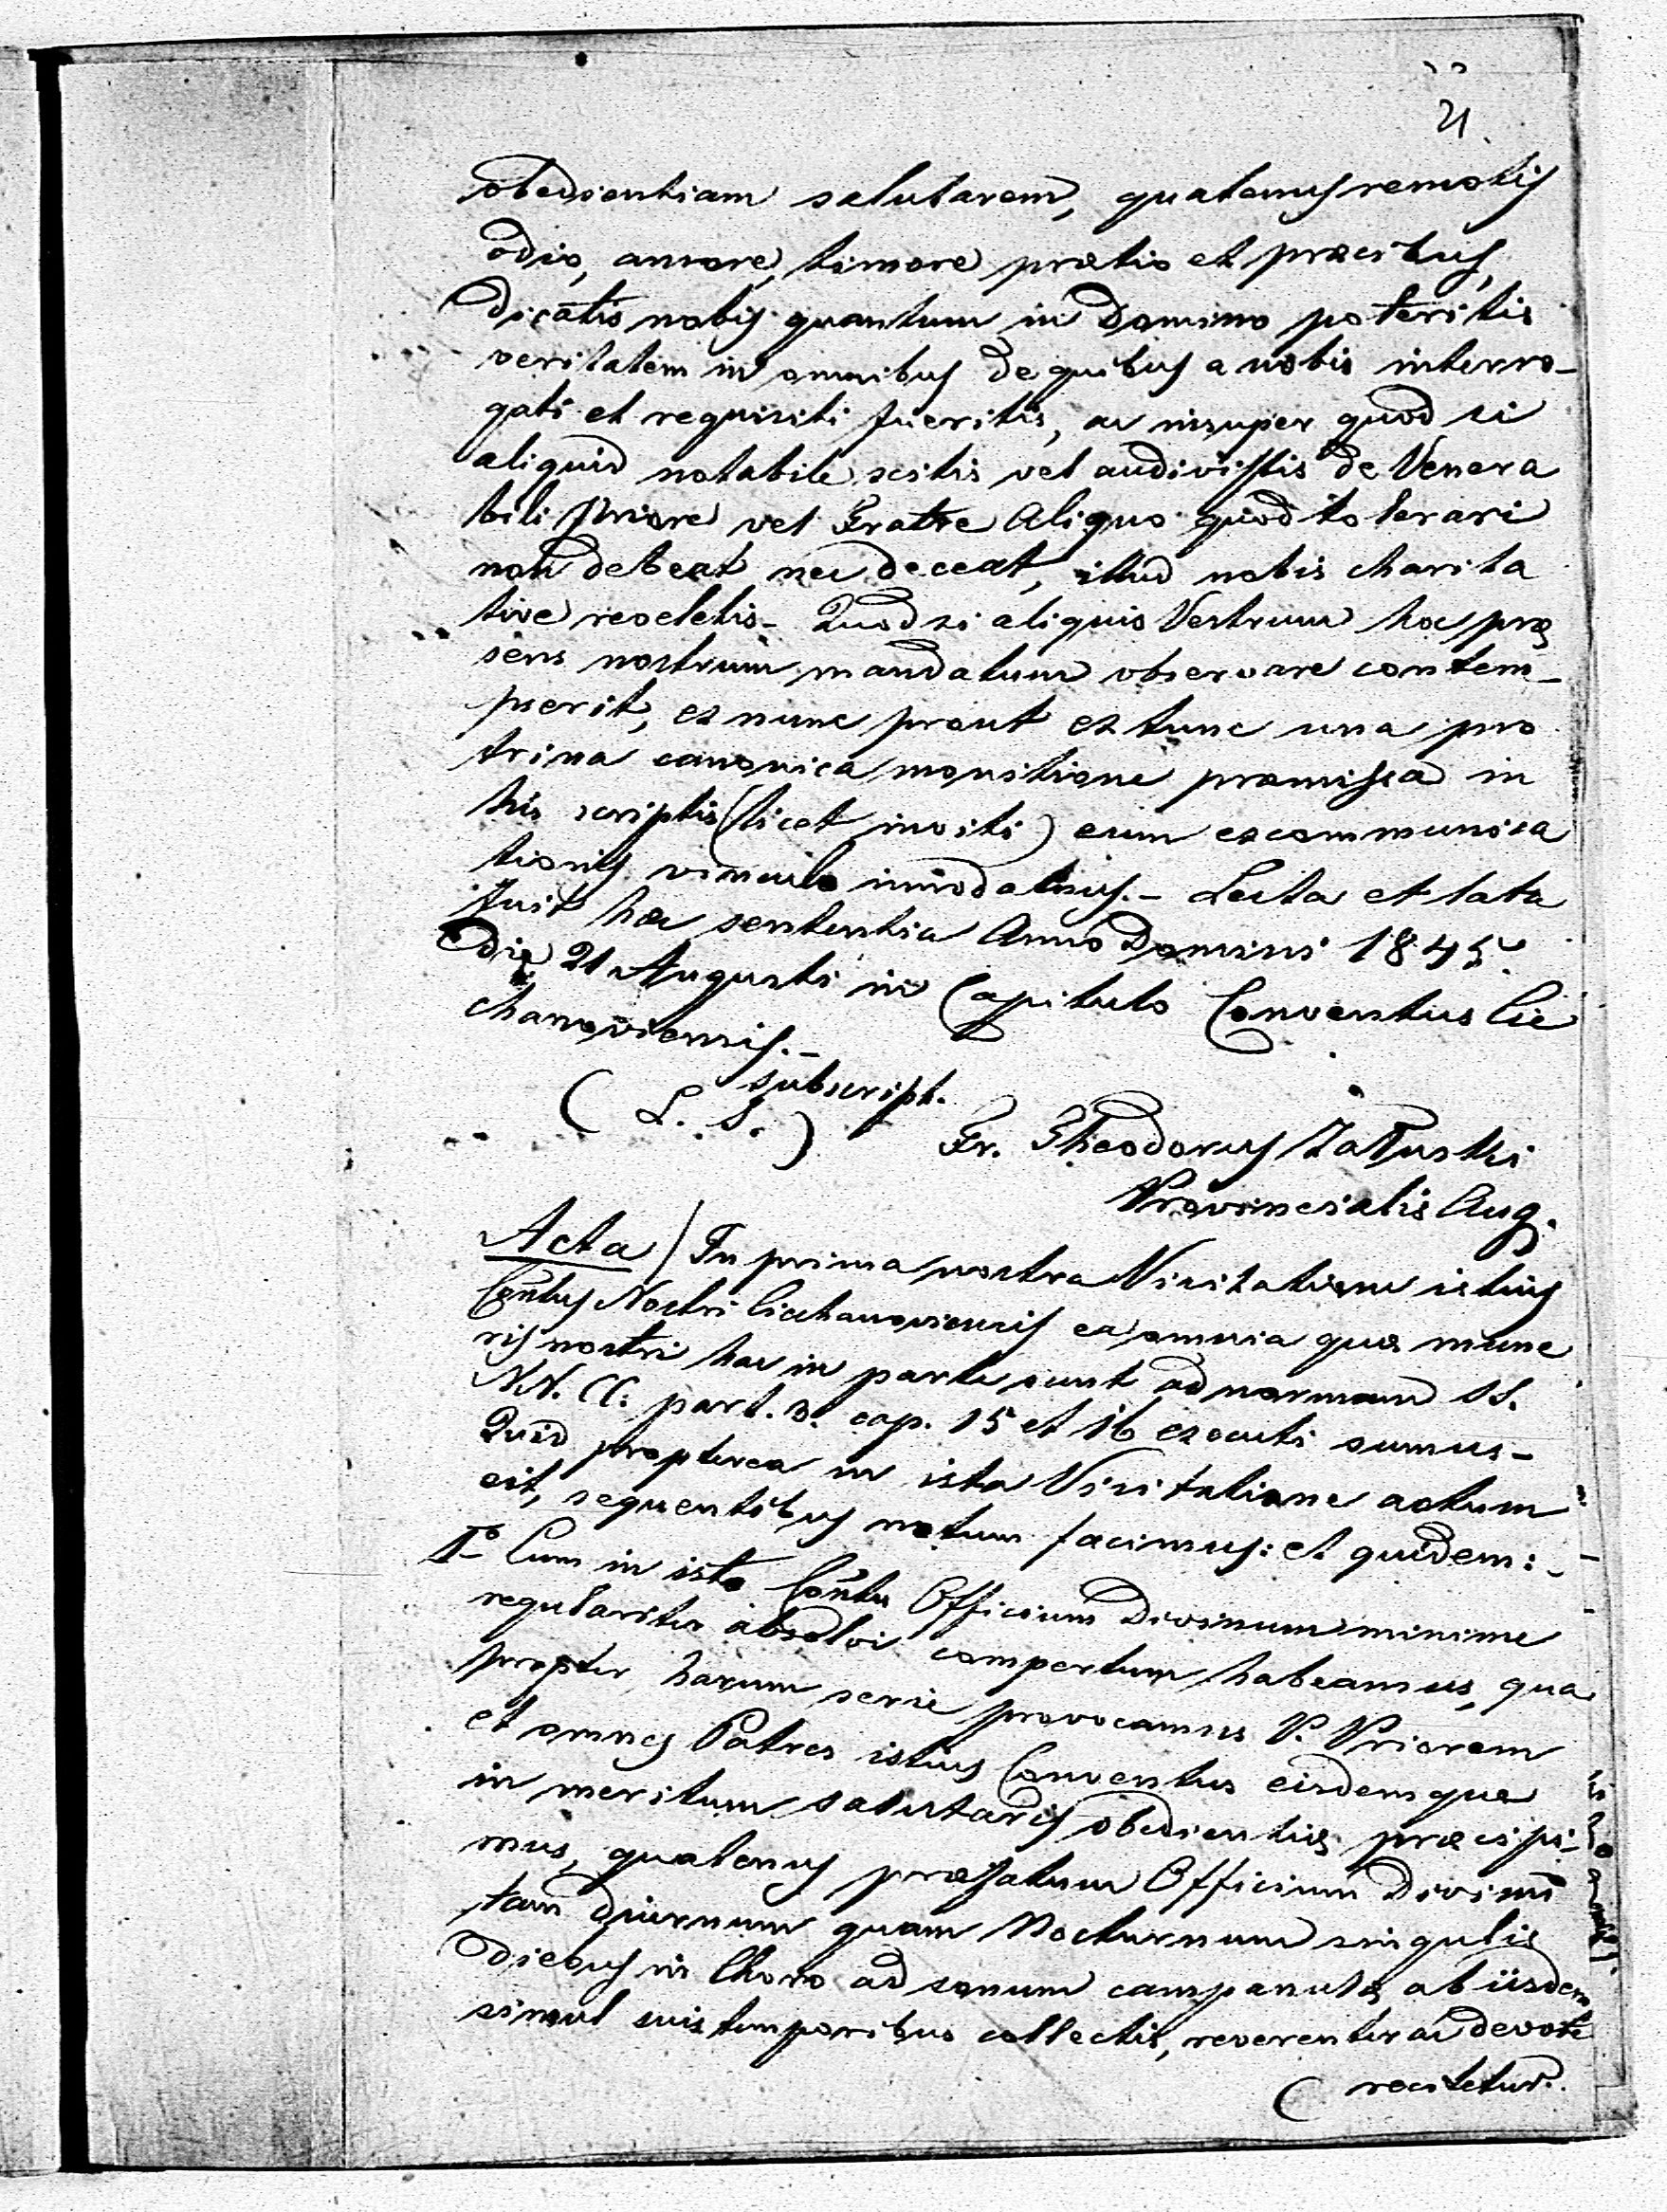 21
obedientiam salutarem, quatenus remotis
odio, amore, timore prætio et præcibus,
dicatis nobis quantum in Domino poteritis
veritatem in omnibus de quibus a nobis interro-
gati et requisiti fueritis, ac insuper quod si
aliquid notabile scitis vel audivistis de Venera
bili Priore vel Fratre Aliquo quod tolerari
non debeat nec deceat, illud nobis charita
tive reveletis. Quod si aliquis Vestrum hoc præ
sens nostrum mandatum observare contem-
pserit, ex nunc prout ex tunc una pro
trina canonica monitione præmissa in
his scriptis (licet inviti) eum excommunica
tionis vinculo innodamus.- Lecta et lata
fuit hæc sententia Anno Domini 1845
die 21 Augusti in Capitulo Conventus Cie
chanoviensis.-
subscript.
(L. S.)
Fr. Theodorus Załuski
Provincialis Aug.
Acta / In prima nostra Visitatione istius
Contus Nostri Ciechanoviensis ea omnia quæ mune
ris nostri hac in parte sunt ad normam SS.
N.N. CC: part. 3. cap. 15 et 16 executi sumus-
Quid propterea in ista Visitatione actum
est, sequentibus notum facimus: et quidem:-
1º Cum in isto Contu Officium Divinum minime
regulariter absolvi compertum habeamus, qua
propter harum serie provocamus V. Priorem
et omnes Patres istius Conventus eisdemque
in meritum salutaris obedientiæ præcipi-
mus, quatenus præfatum Officium Divinū
tam diurnum quam Nocturnum singulis
diebus in Choro ad sonum campanulæ ab iisdem
simul suis temporibus collectis, reverenter ac devote
recitetur.